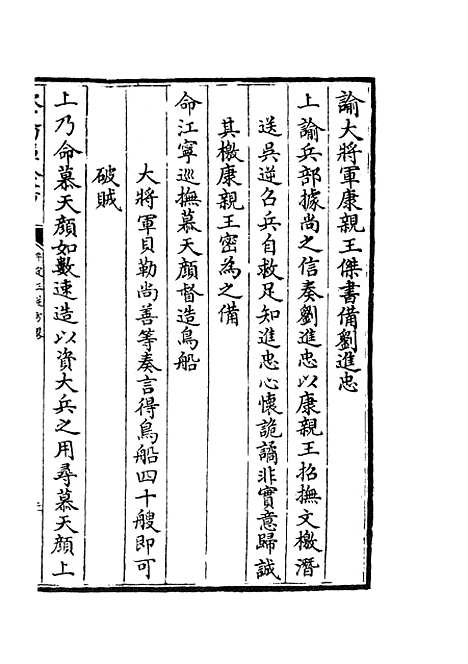 諭大將軍康親王傑書備劉進忠
上諭兵部據尚之信奏劉進忠以康親王招撫文檄潛
送吳逆召兵自救足知進忠心懷詭譎非實意歸誠
其檄康親王密為之備
命江寧巡撫慕天顔督造鳥船
大將軍貝勒尚善等奏言得鳥船四十艘即可
破賊
上乃命慕天顔如數速造以資大兵之用尋慕天顔上